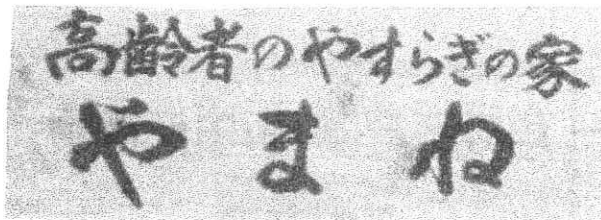 高齢者のやすらぎの家
やまね